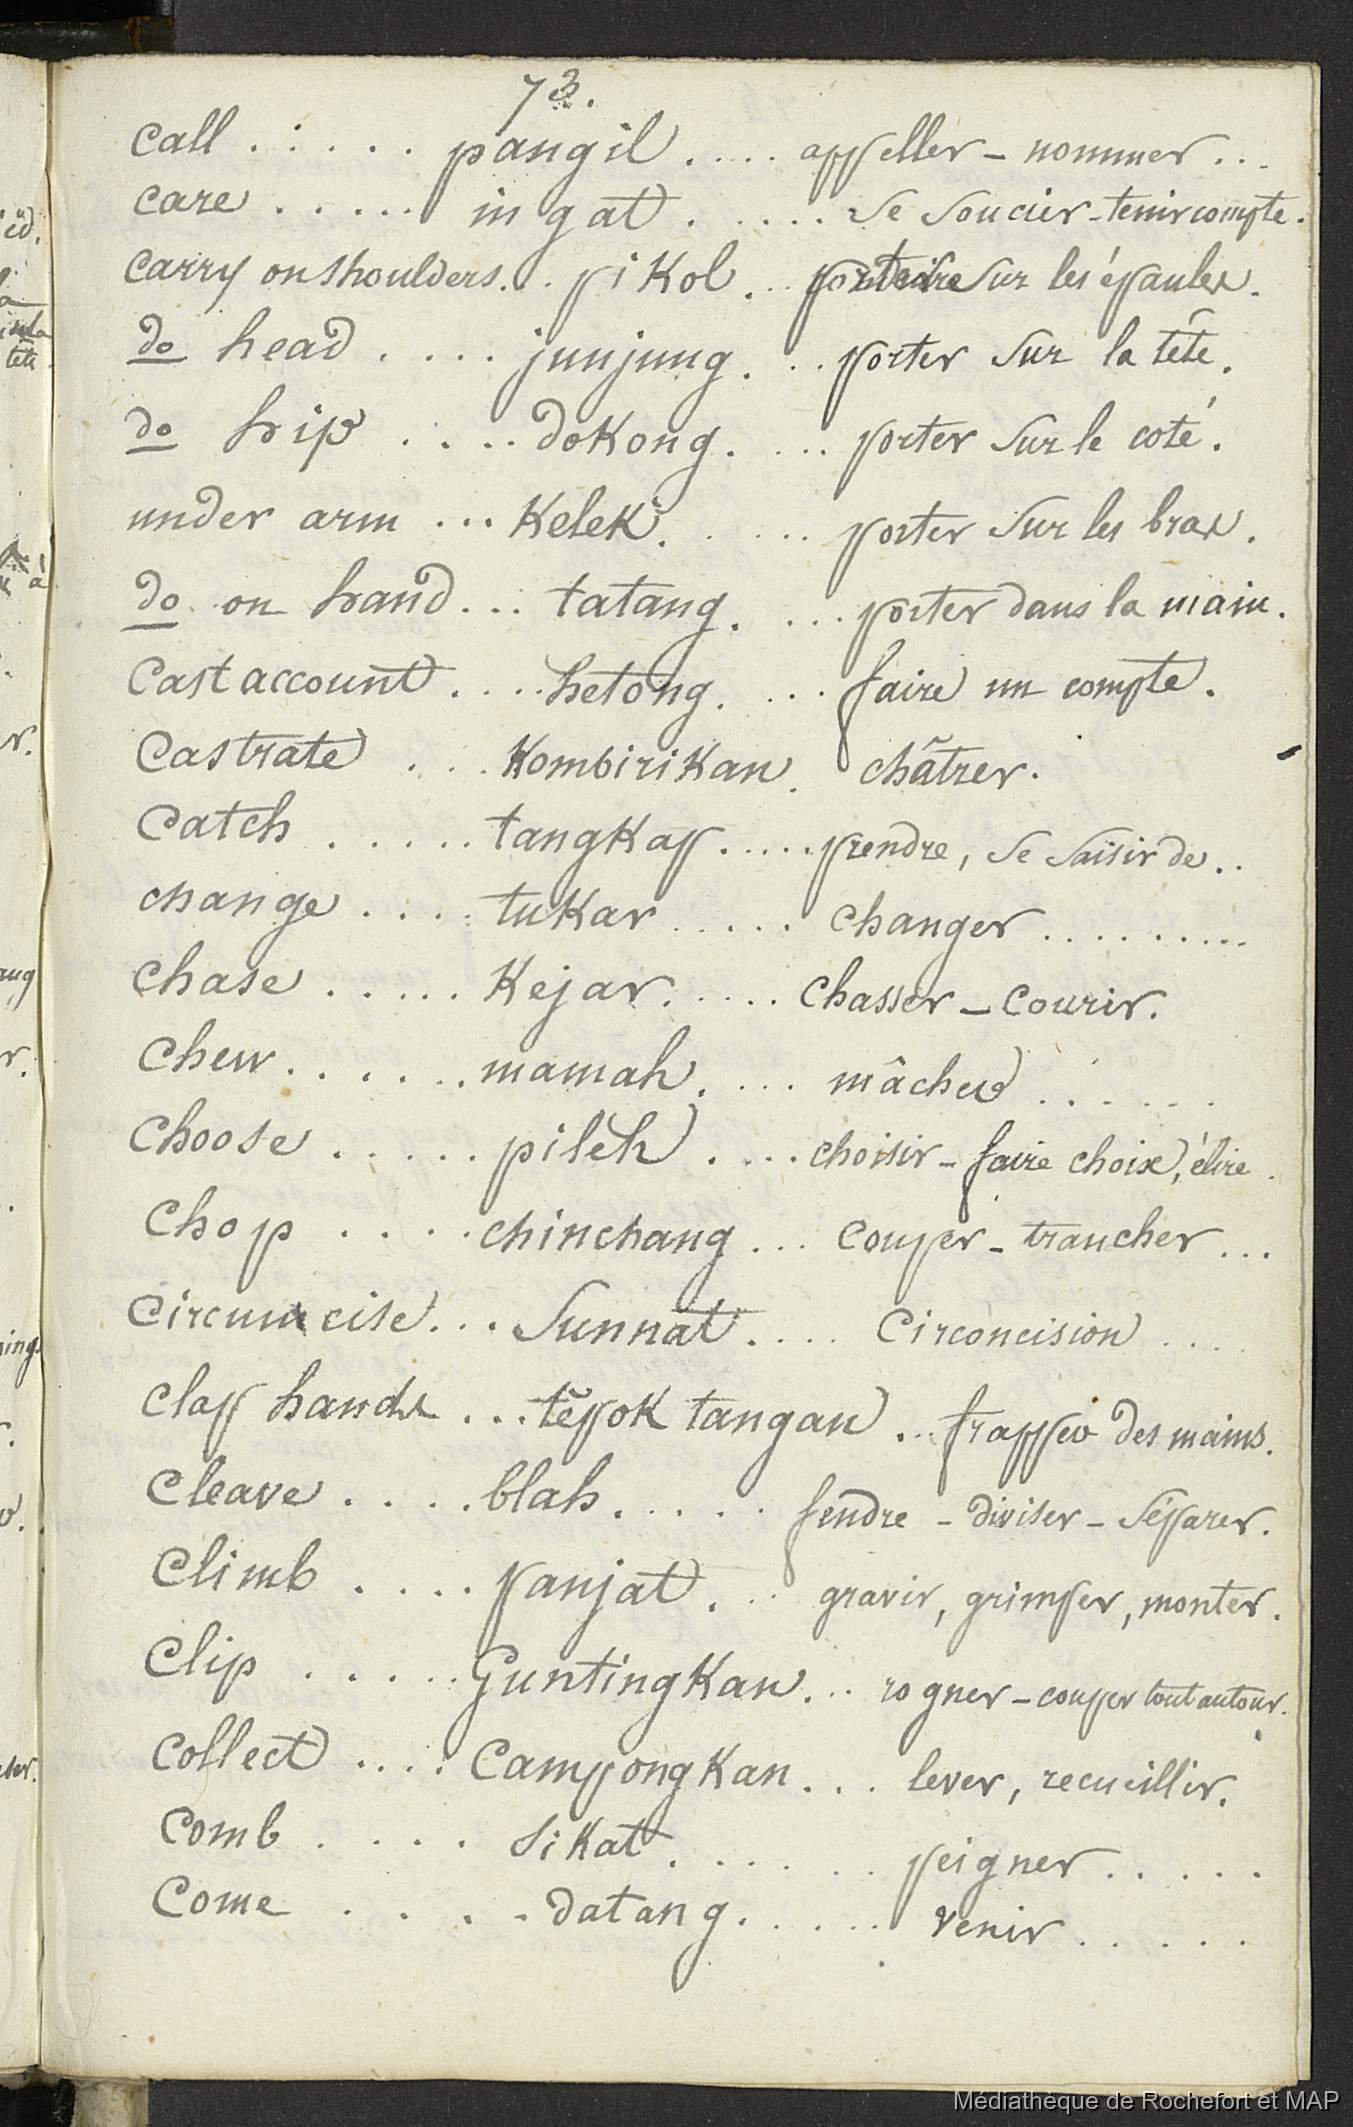 73.
Call . . . . . pangil . . . . appeller - nommer . . .
Care . . . . . in gat . . . . . Se Soucier - tenir compte.
Carry on shoulders . . pikol . . . Sur les épaules.
do head . . . . junjung . . . porter Sur la tête.
do hip . . . . dokong . . . . porter Sur le coté.
under arm . . . Kelek . . . . porter Sur les bras.
do on hand . . . tatang . . . . porter dans la main.
Cast account . . . . hetong . . . . faire un compte.
Castrate . . . Kombirikan . châtrer.
Catch . . . . . tangKap . . . . . prendre, Se Saisir de . .
change . . . . tuKar . . . . . Changer . . . . . . . . .
Chase . . . . . Kejar . . . . . Chasser - Courir.
Chew . . . . . . mamah . . . . mâcher . . . . . .
Choose . . . . . piléh . . . . choisir - faire choix, élire .
Chop . . . . . chinchang . . . Couper - trancher . . .
Circumcise . . . Sunnat . . . . Circoncision . . . .
Clap hands . . . tĕpok tangan . . . frapper des mains.
Cleave . . . . blah . . . . . fendre - diviser - Séparer.
Climb . . . . panjat . . . gravir, grimper, monter.
Clip . . . . . GuntingKan . . . rogner - couper tout autour.
Collect . . . . CampongKan . . . lever, recueillir.
Comb . . . . Sikat . . . . . . peigner . . . . .
Come . . . . datang . . . . . Venir . . . . .
Médiathèque de Rochefort et MAP